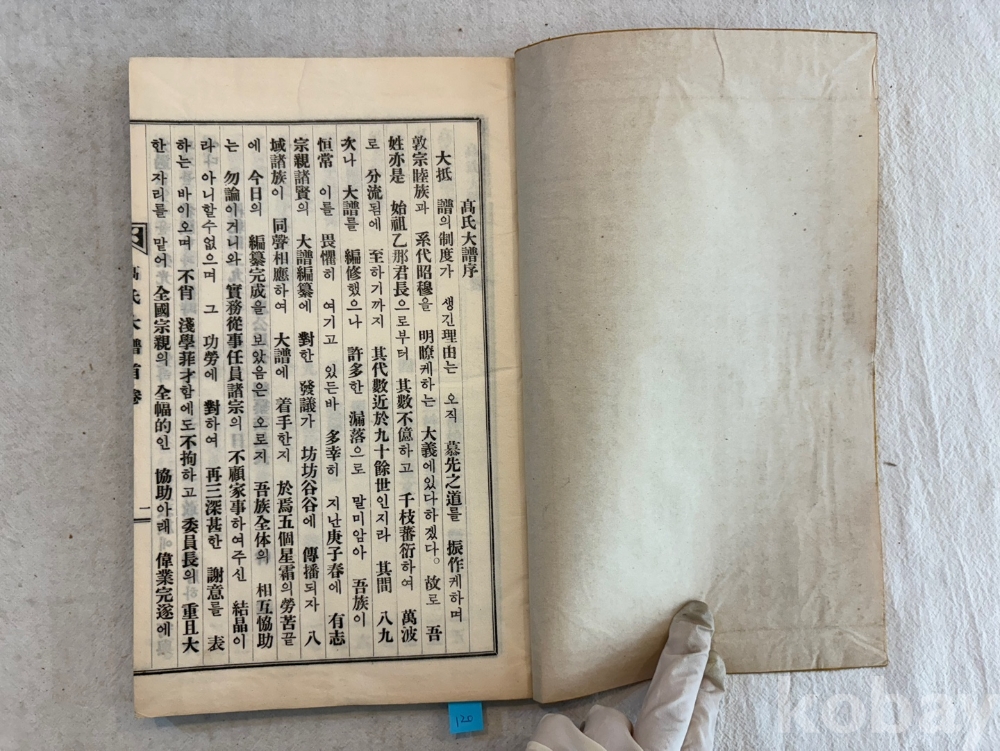 高氏大譜序
大抵 譜의 制度가 생긴理由는 오직 慕先之道를 振作케하며
敦宗睦族과 系代昭穆을 明瞭케하는 大義에있다하겠다。故로 吾
姓亦是 始祖乙那君長으로부터 其數不億하고 千枝蕃衍하여 萬波
로 分流됨에 至하기까지 其代數近於九十餘世인지라 其間 八九
次나 大譜를 編修했으나 許多한 漏落으로 말미암아 吾族이
恒常 이를 畏懼히 여기고 있든바 多幸히 지난庚子春에 有志
宗親諸賢의 大譜編纂에 對한 發議가 坊坊谷谷에 傳播되자 八
域諸族이 同聲相應하여 大譜에 着手한지 於焉五個星霜의勞苦끝
에 今日의 編纂完成을보았음은 오로지 吾族全体의 相互協助
는 勿論이거니와 實務從事任員諸宗의 不顧家事하여주신 結晶이
라 아니할수없으며 그 功勞에 對하여 再三深甚한 謝意를 表
하는 바이오며 不肖 淺學菲才함에도不拘하고 委員長의 重且大
한 자리를 맡어 全國宗親의 全幅的인 協助아래 偉業完遂에
高氏大譜首卷
一
120
kobay